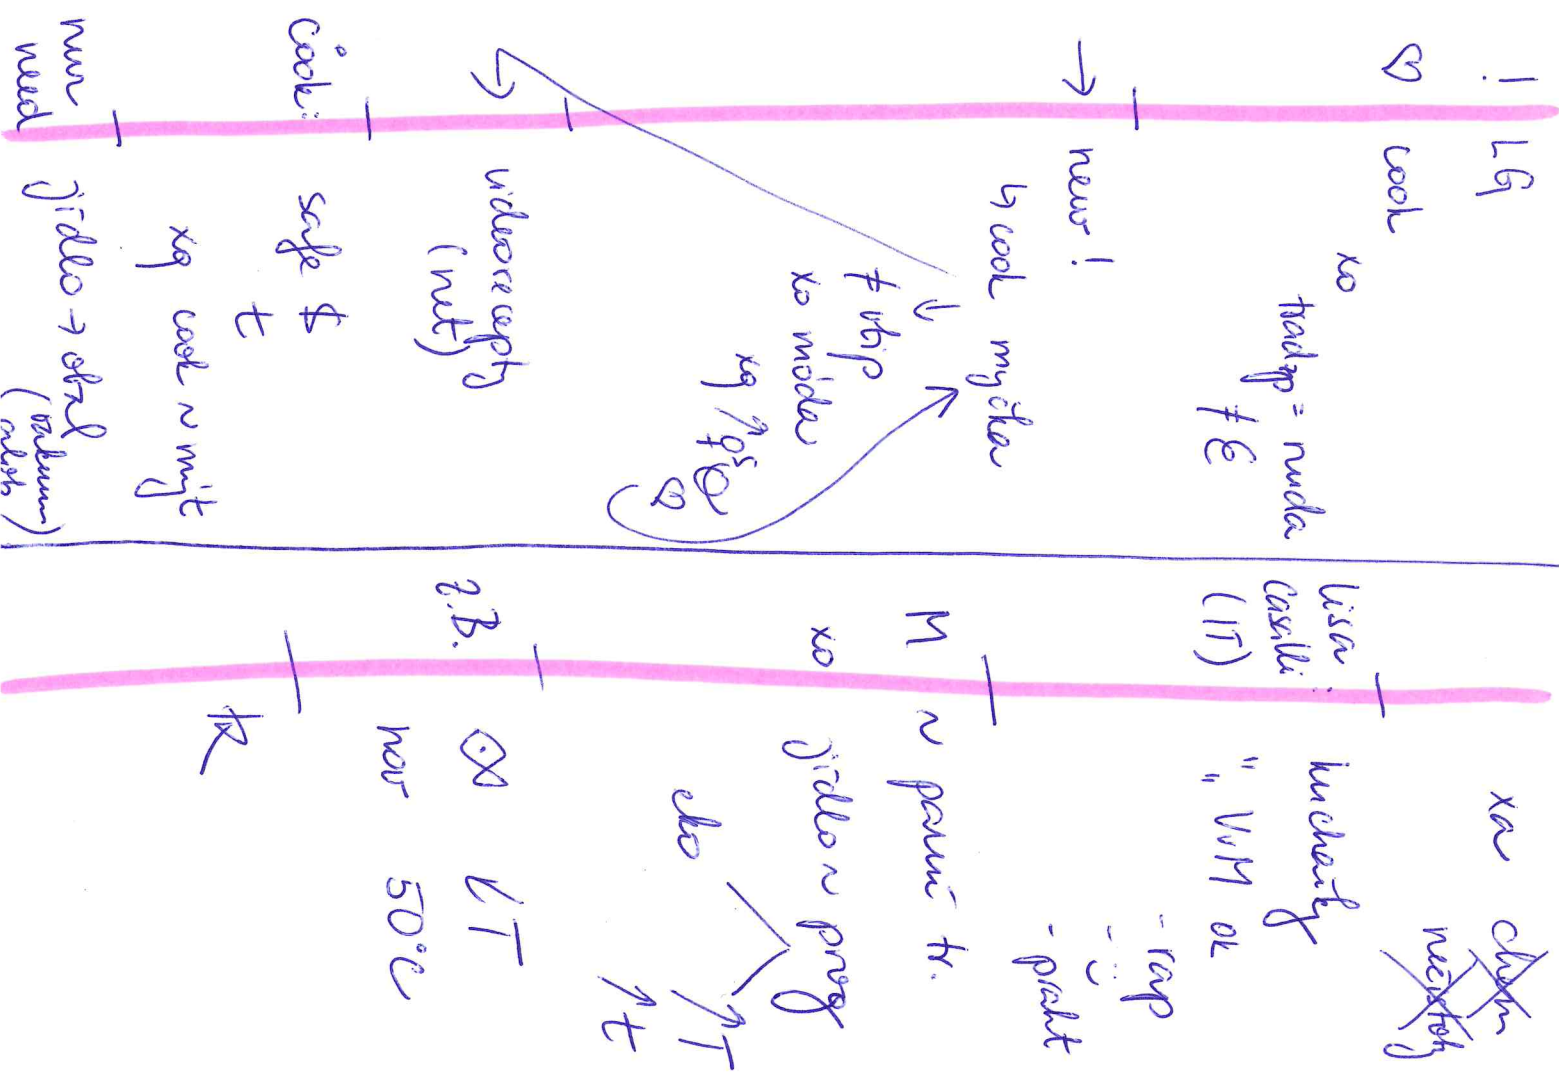 ! LG
♡ cook
xo
trad zp = nuda
≠ €
→ new!
↳ cook myčka
↓
≠ vtip
xo móda
xq ↗ ♀s
♡
videorecepty
(net)
cook: safe $
t
xq cook ~ mýt
nur need jídlo → obal
(vakuum
xa chem
nečistoty
Lisa Casalli: kuchařky
(IT) " VvM ok
- rap
- ¨
- praht
M ~ parní tr.
xo jídlo ~ prog
eko
↗ T
↗ t
z.B. ↙ T
hov 50°C